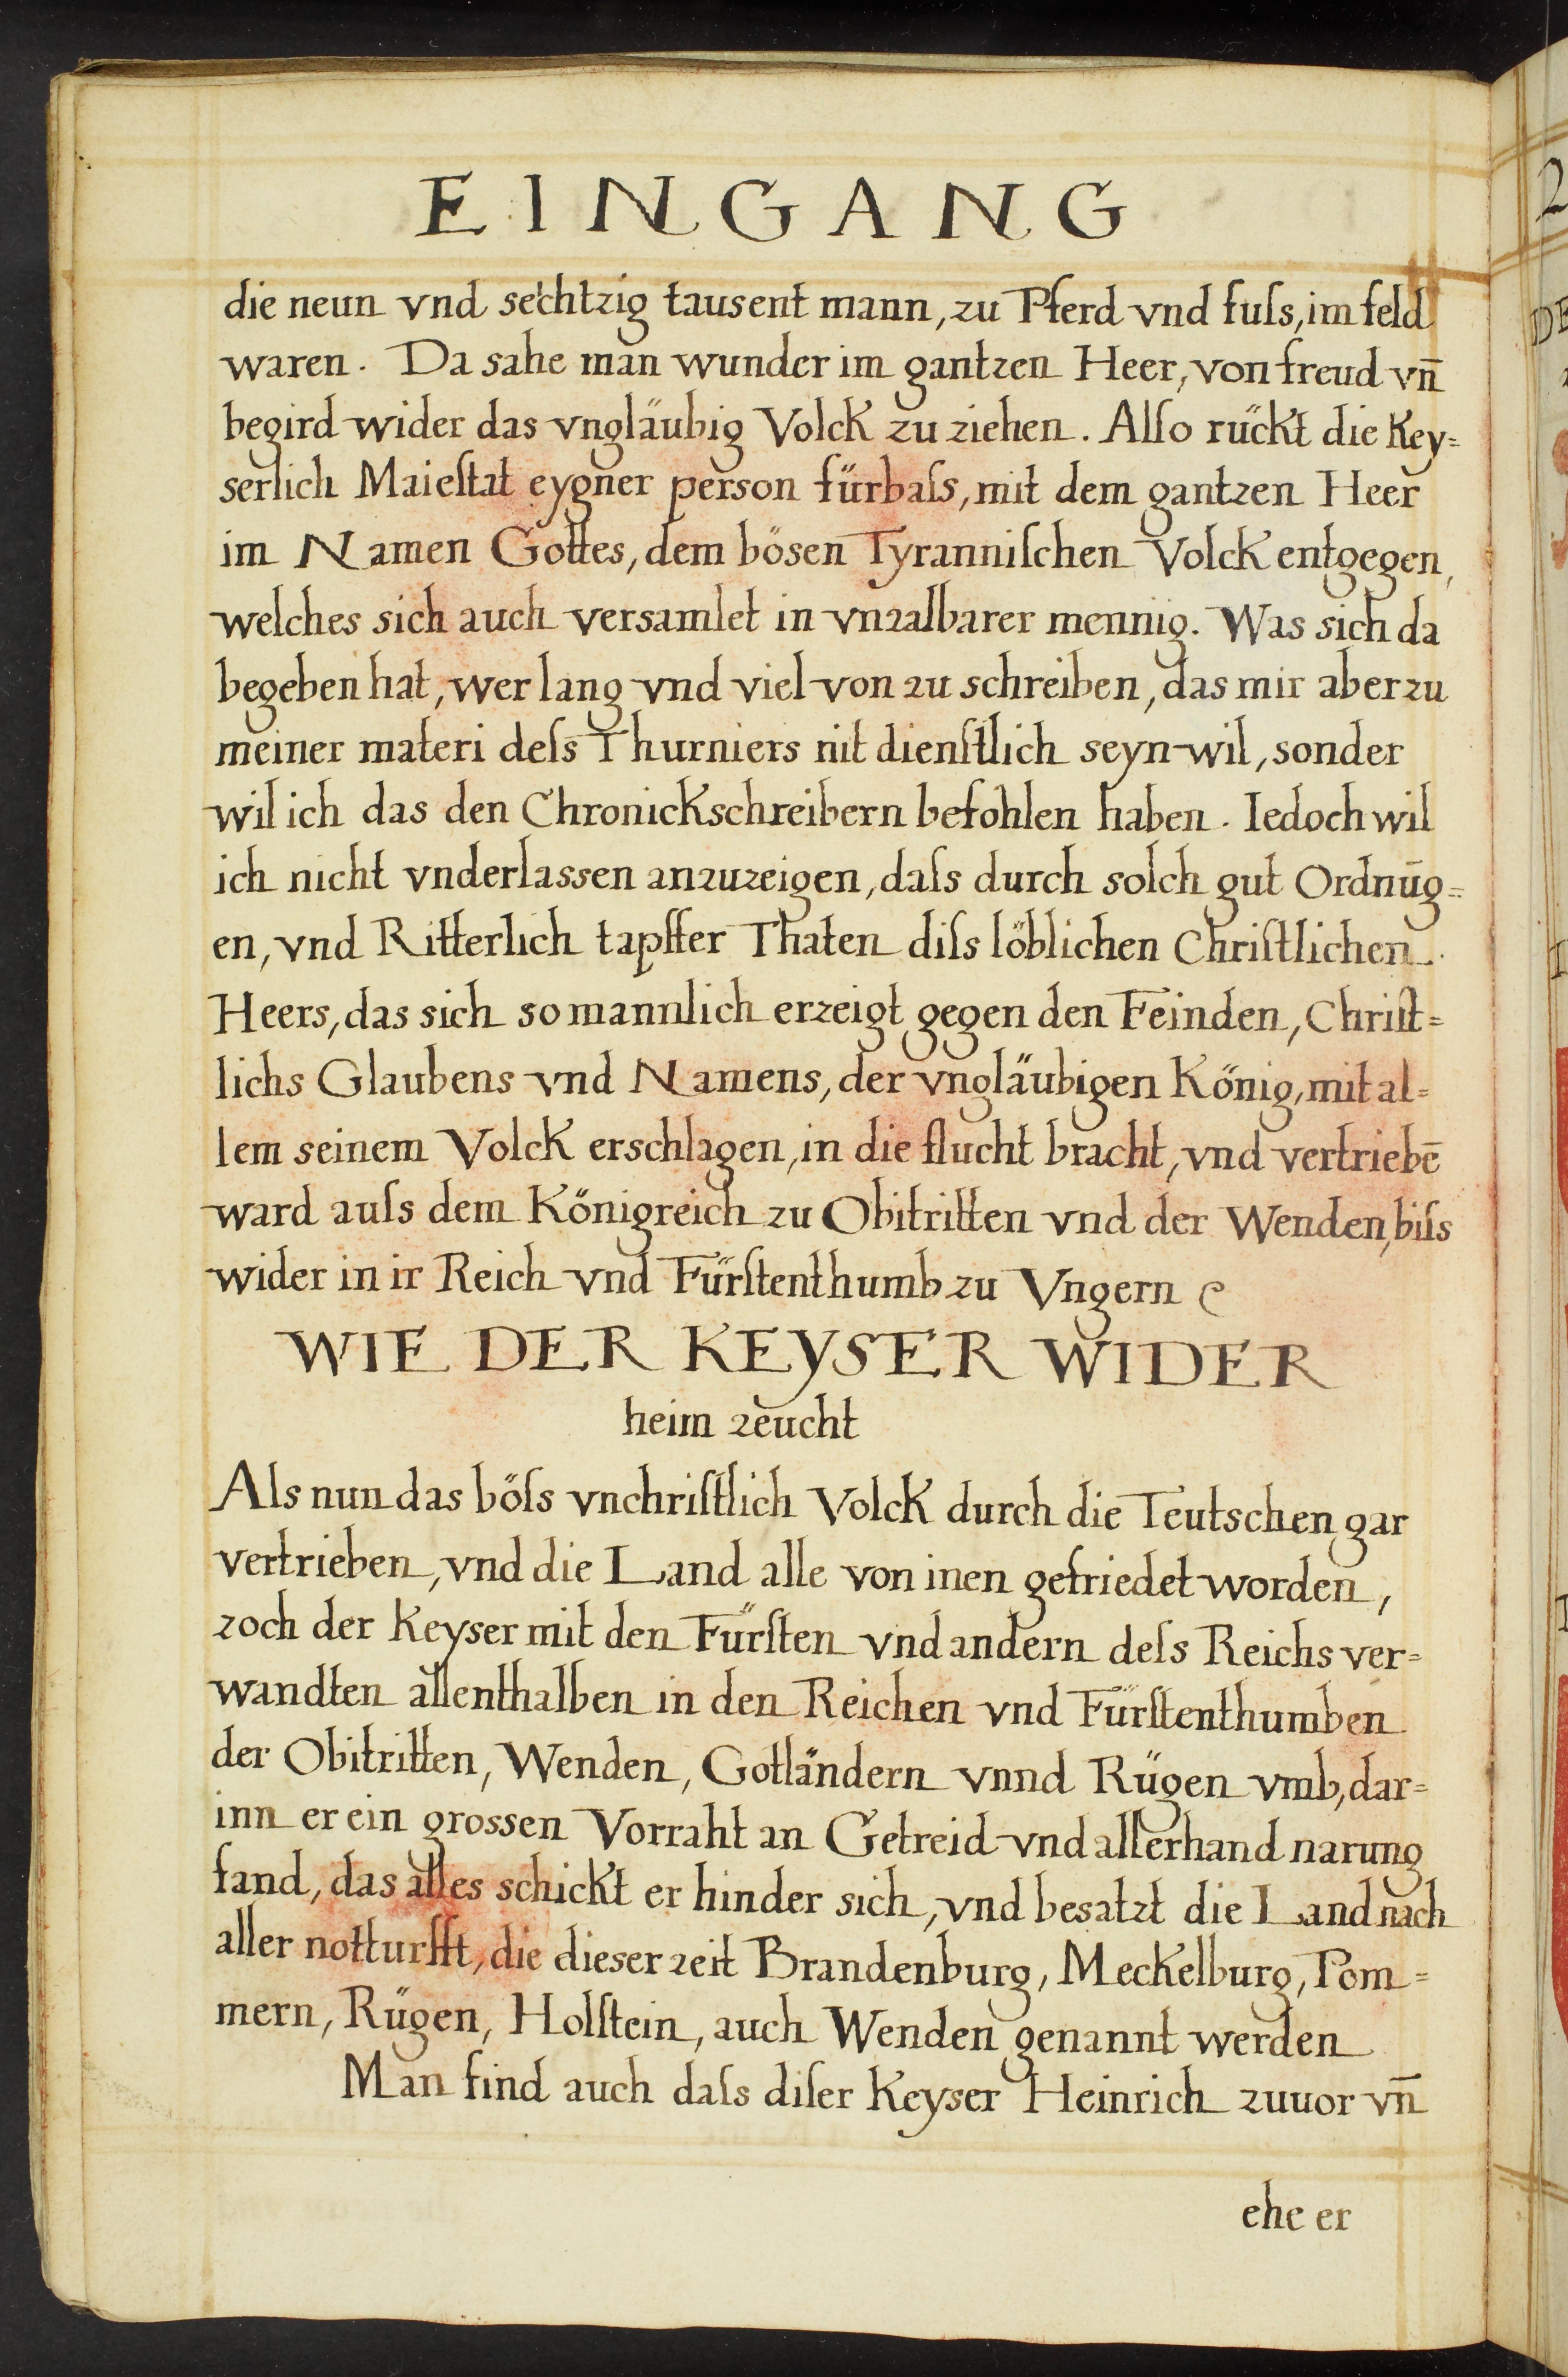 EINGANG
die neun vnd sechtzig tausent mann, zu Pferd vnd fuſs, im feld
waren. Da sahe man wunder im gantzen Heer, von freud vn̄
begird wider das vngläubig Volck zu ziehen. Alſo rückt die Key=
serlich Maieſtat eygner person fürbaſs, mit dem gantzen Heer
im Namen Gottes, dem bösen Tyranniſchen Volck entgegen,
welches sich auch versamlet in vnzalbarer mennig. Was sich da
begeben hat, wer lang vnd viel von zu schreiben, das mir aber zu
meiner materi deſs Thurniers nit dienſtlich seyn wil, sonder
wil ich das den Chronickschreibern befohlen haben. Iedoch wil
ich nicht vnderlassen anzuzeigen, daſs durch solch gut Ordnūg=
en, vnd Ritterlich tapffer Thaten diſs löblichen Chriſtlichen
Heers, das sich so mannlich erzeigt gegen den Feinden, Chriſt=
lichs Glaubens vnd Namens, der vngläubigen König, mit al=
lem seinem Volck erschlagen, in die flucht bracht, vnd vertriebē
ward auſs dem Königreich zu Obitritten vnd der Wenden, biſs
wider in ir Reich vnd Fürſtenthumb zu Vngern
WIE DER KEYSER WIDER
heim zeucht
Als nun das böſs vnchriſtlich Volck durch die Teutschen gar
vertrieben, vnd die Land alle von inen gefriedet worden,
zoch der Keyser mit den Fürſten vnd andern deſs Reichs ver=
wandten allenthalben in den Reichen vnd Fürſtenthumben
der Obitritten, Wenden, Gotländern vnnd Rügen vmb, dar=
inn er ein grossen Vorraht an Getreid vnd allerhand narung
fand, das alles schickt er hinder sich, vnd besatzt die Land nach
aller notturfft, die dieser zeit Brandenburg, Meckelburg, Pom=
mern, Rügen, Holſtein, auch Wenden genannt werden
Man find auch daſs diſer Keyser Heinrich zuuor vn̄
ehe er